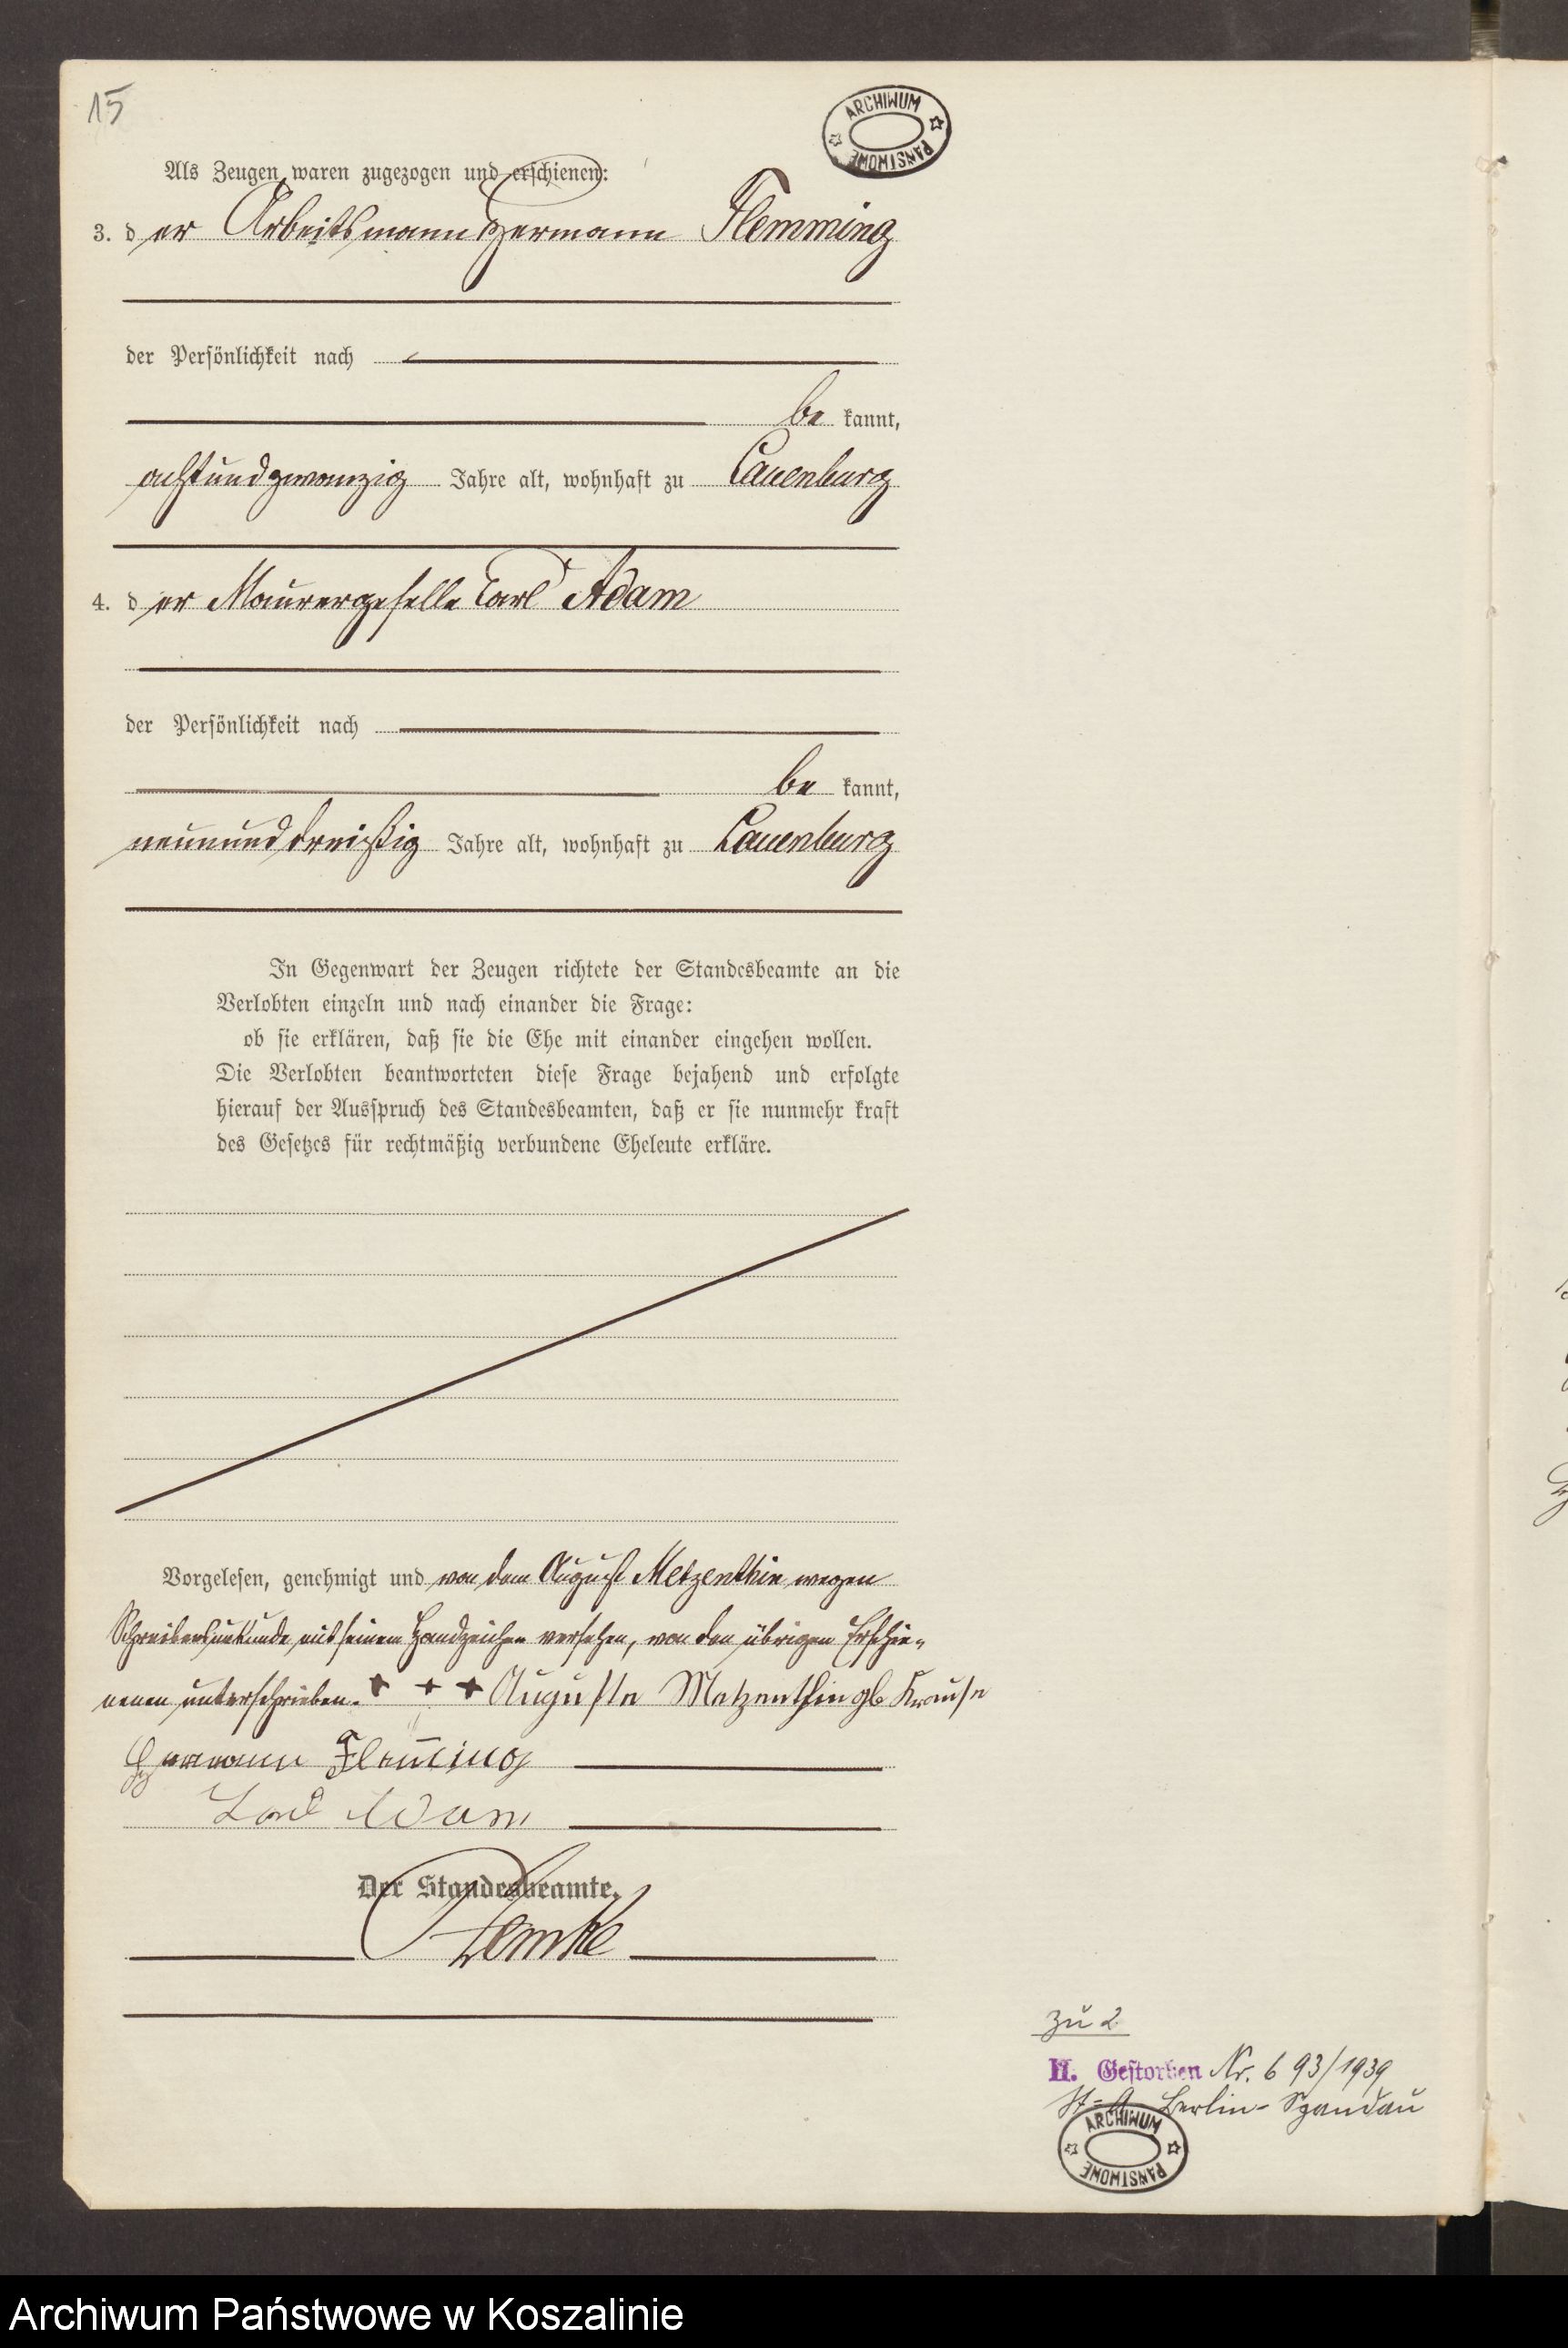 15
ARCHIWUM PAŃSTWOWE
Als Zeugen waren zugezogen und erschienen:
3. der Arbeitsmann Hermann Flemming
der Persönlichkeit nach
be kannt,
achtundzwanzig Jahre alt, wohnhaft zu Lauenburg
4. der Maurergeselle Carl Adam
der Persönlichkeit nach
be kannt,
neununddreißig Jahre alt, wohnhaft zu Lauenburg
In Gegenwart der Zeugen richtete der Standesbeamte an die
Verlobten einzeln und nach einander die Frage:
ob sie erklären, daß sie die Ehe mit einander eingehen wollen.
Die Verlobten beantworteten diese Frage bejahend und erfolgte
hierauf der Ausspruch des Standesbeamten, daß er sie nunmehr kraft
des Gesetzes für rechtmäßig verbundene Eheleute erkläre.
Vorgelesen, genehmigt und von dem August Metzenthin wegen
Schreibensunkunde mit seinem Handzeichen versehen, von den übrigen Erschie-
nenen unterschrieben. + + + Auguste Metzenthin gb Krause
Hermann Flem̅ing
Carl Adam
Der Standesbeamte.
Lemke
zu 2
II. Gestorben Nr. 693/1939
St-A Berlin-Spandau
ARCHIWUM PAŃSTWOWE
Archiwum Państwowe w Koszalinie